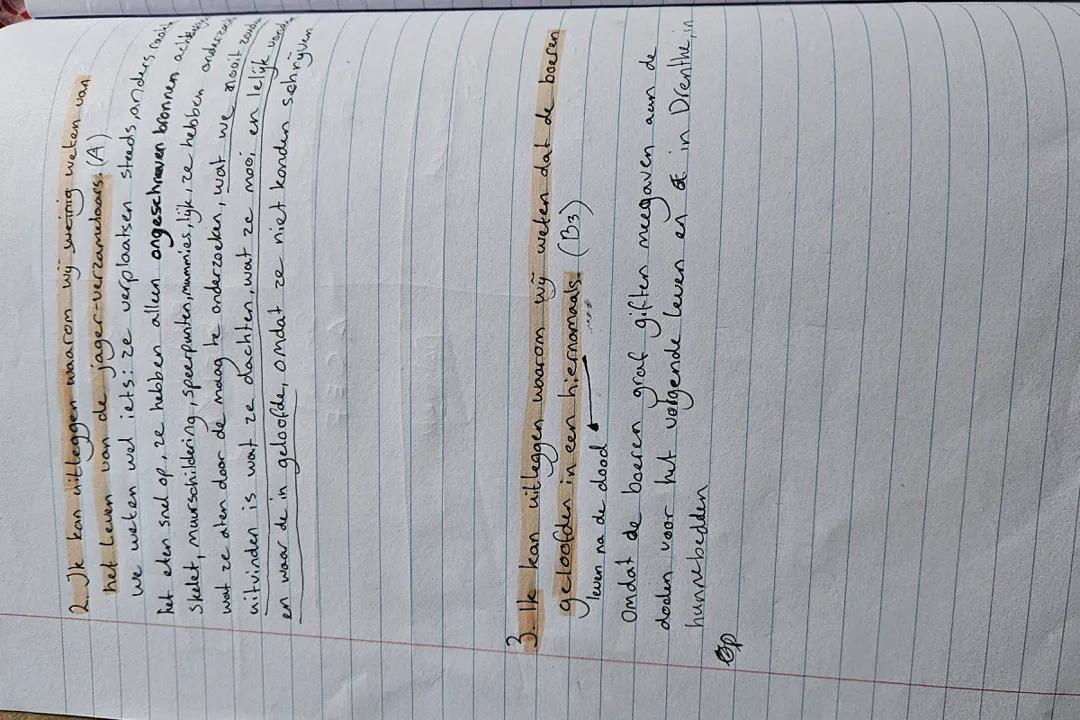 2. Ik kan uitleggen waarom wij weinig weten van
het leven van de jager-verzamelaars. (A)
we weten wel iets: ze verplaatsen steeds, anders
het eten snel op, ze hebben alleen ongeschreven bronnen
skelet, muurschildering, speerpunten, mummies, lijk, ze hebben
wat ze aten door de maag te onderzoeken, wat we nooit
uitvinden is wat ze dachten, wat ze mooi en lelijk
en waar de in geloofde, omdat ze niet konden schrijven
3. Ik kan uitleggen waarom wij weten dat de boeren
geloofden in een hiernamaals. (B3)
leven na de dood
Omdat de boeren graf giften meegaven aan de
doden voor het volgende leven en in Drenthe, in
hunnebedden